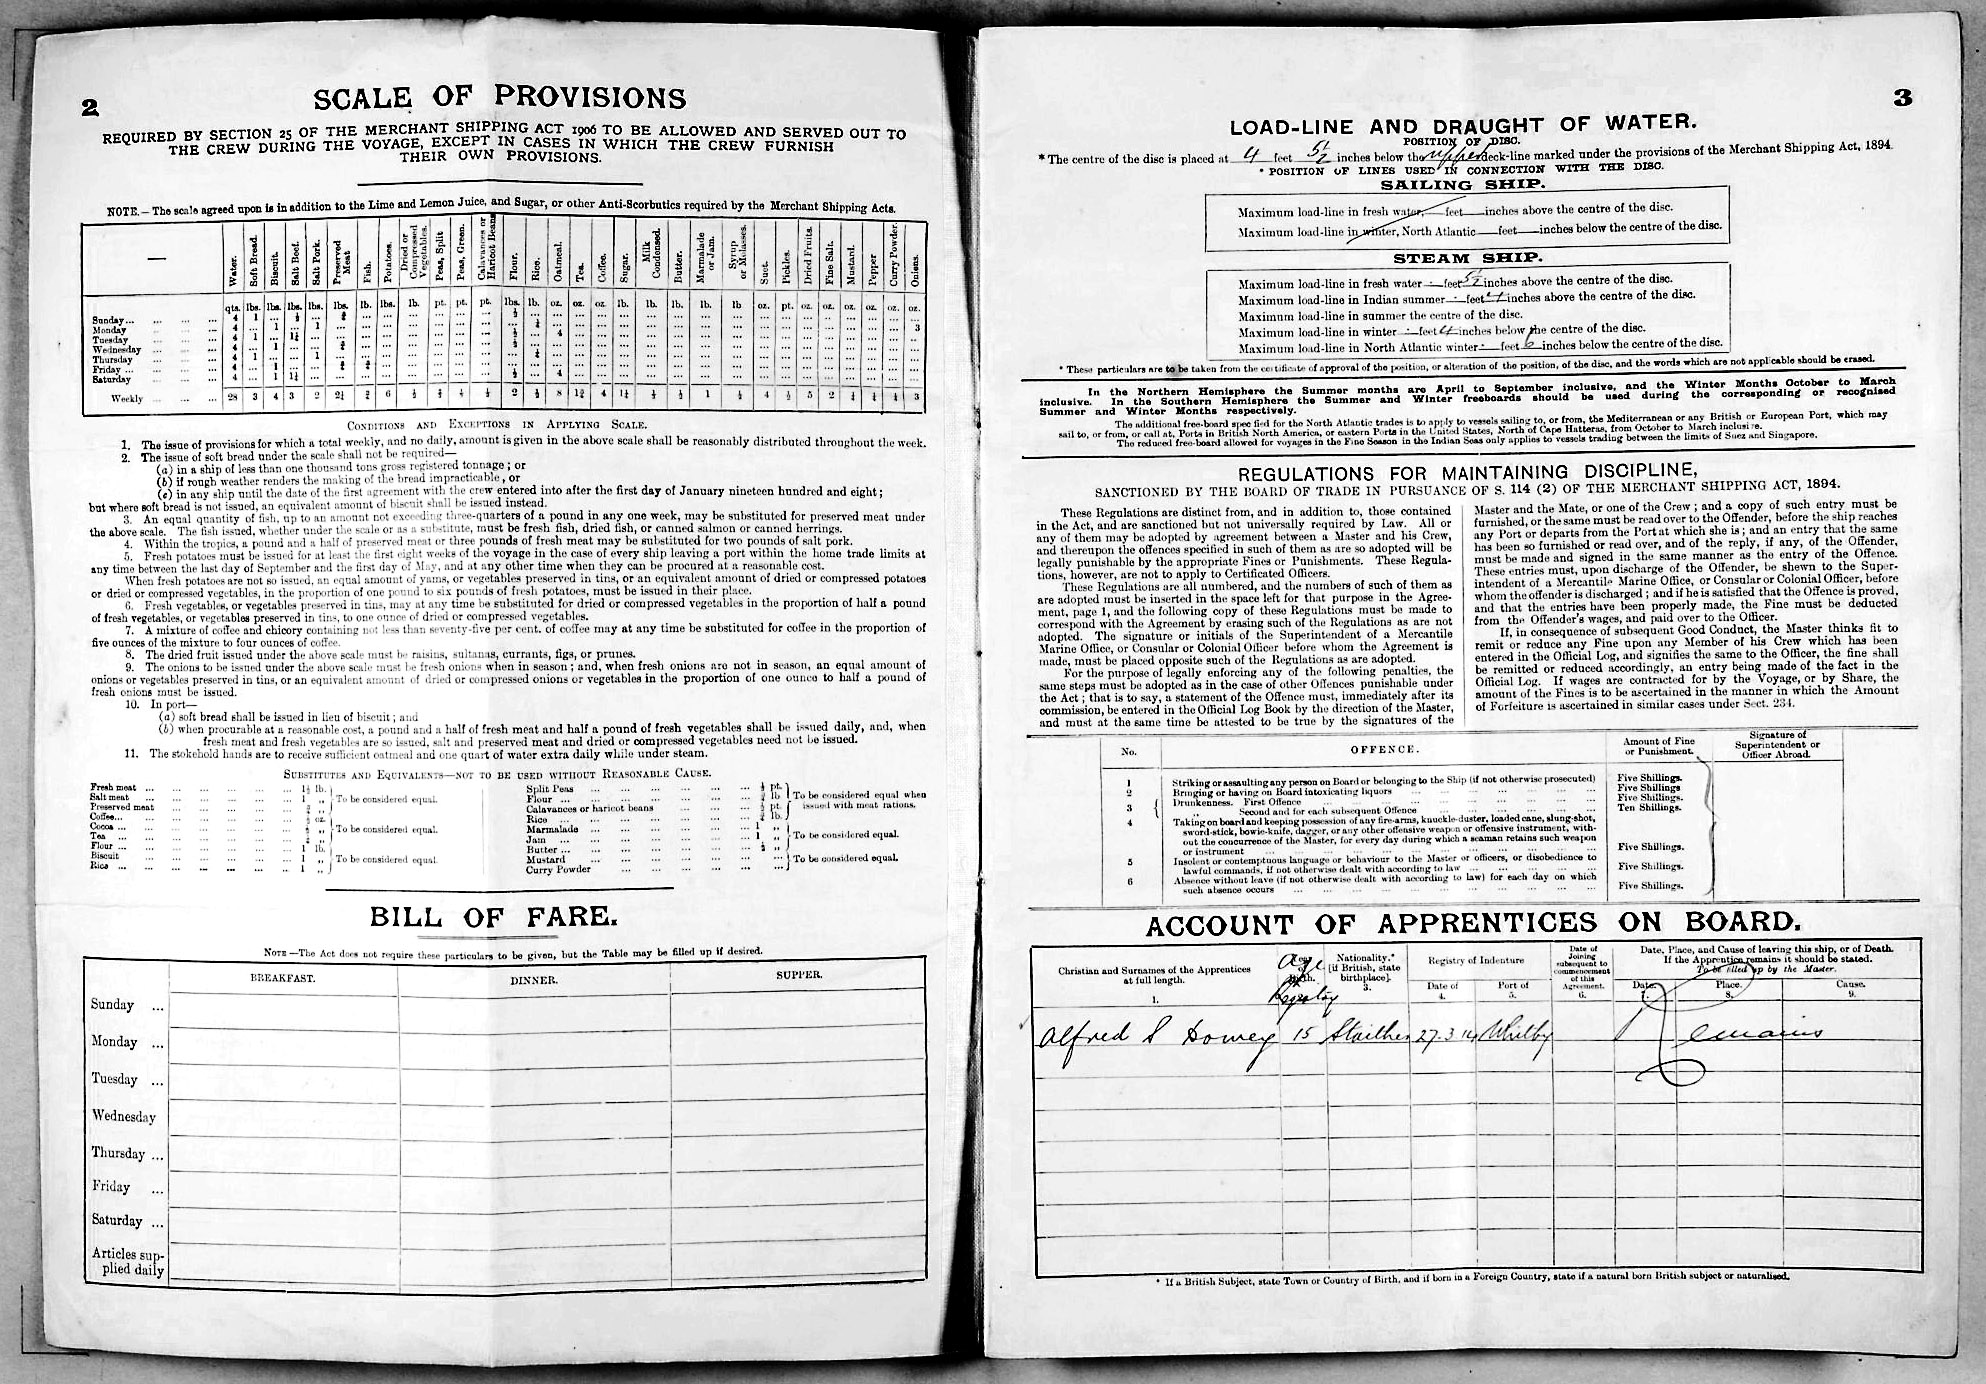 2
SCALE OF PROVISIONS
REQUIRED BY SECTION 25 OF THE MERCHANT SHIPPING ACT 1906 TO BE ALLOWED AND SERVED OUT TO
THE CREW DURING THE VOYAGE, EXCEPT IN CASES IN WHICH THE CREW FURNISH
THEIR OWN PROVISIONS.
NOTE.—The scale agreed upon is in addition to the Lime and Lemon Juice, and Sugar, or other Anti-Scorbutics required by the Merchant Shipping Acts.
— Water. Soft Bread. Biscuit. Salt Beef. Salt Pork. Preserved Meat Fish. Potatoes. Dried or Compressed Vegetables. Peas, Split Peas, Green. Calavances or Haricot Beans Flour. Rice. Oatmeal. Tea. Coffee. Sugar. Milk Condensed. Butter. Marmalade or Jam. Syrup or Molasses. Suet. Pickles. Dried Fruits. Fine Salt. Mustard. Pepper Curry Powder. Onions.
qts. lbs. lbs. lbs. lbs. lbs. lb. lbs. lb. pt. pt. pt. lbs. lb. oz. oz. oz. lb. lb. lb. lb. lb oz. pt. oz. oz. oz. oz. oz. oz.
Sunday... 4 1
Monday 4 1 1
Tuesday 4 1 1¼ 4
Wednesday 4 1
Thursday 4 1 1
Friday ... 4 1
Saturday 4 1 1¼ 4
Weekly 28 3 4 3 2 2¼ ¾ 6 2 ½ 8 1¾ 4 1¼ 1 4 ½ 5 2 ¼ ¼ ¼ 3
CONDITIONS AND EXCEPTIONS IN APPLYING SCALE.
1. The issue of provisions for which a total weekly, and no daily, amount is given in the above scale shall be reasonably distributed throughout the week.
2. The issue of soft bread under the scale shall not be required—
(a) in a ship of less than one thousand tons gross registered tonnage; or
(b) if rough weather renders the making of the bread impracticable, or
(c) in any ship until the date of the first agreement with the crew entered into after the first day of January nineteen hundred and eight;
but where soft bread is not issued, an equivalent amount of biscuit shall be issued instead.
3. An equal quantity of fish, up to an amount not exceeding three-quarters of a pound in any one week, may be substituted for preserved meat under
the above scale. The fish issued, whether under the scale or as a substitute, must be fresh fish, dried fish, or canned salmon or canned herrings.
4. Within the tropics, a pound and a half of preserved meat or three pounds of fresh meat may be substituted for two pounds of salt pork.
5. Fresh potatoes must be issued for at least the first eight weeks of the voyage in the case of every ship leaving a port within the home trade limits at
any time between the last day of September and the first day of May, and at any other time when they can be procured at a reasonable cost.
When fresh potatoes are not so issued, an equal amount of yams, or vegetables preserved in tins, or an equivalent amount of dried or compressed potatoes
or dried or compressed vegetables, in the proportion of one pound to six pounds of fresh potatoes, must be issued in their place.
6. Fresh vegetables, or vegetables preserved in tins, may at any time be substituted for dried or compressed vegetables in the proportion of half a pound
of fresh vegetables, or vegetables preserved in tins, to one ounce of dried or compressed vegetables.
7. A mixture of coffee and chicory containing not less than seventy-five per cent. of coffee may at any time be substituted for coffee in the proportion of
five ounces of the mixture to four ounces of coffee.
8. The dried fruit issued under the above scale must be raisins, sultanas, currants, figs, or prunes.
9. The onions to be issued under the above scale must be fresh onions when in season; and, when fresh onions are not in season, an equal amount of
onions or vegetables preserved in tins, or an equivalent amount of dried or compressed onions or vegetables in the proportion of one ounce to half a pound of
fresh onions must be issued.
10. In port—
(a) soft bread shall be issued in lieu of biscuit; and
(b) when procurable at a reasonable cost, a pound and a half of fresh meat and half a pound of fresh vegetables shall be issued daily, and, when
fresh meat and fresh vegetables are so issued, salt and preserved meat and dried or compressed vegetables need not be issued.
11. The stokehold hands are to receive sufficient oatmeal and one quart of water extra daily while under steam.
SUBSTITUTES AND EQUIVALENTS—NOT TO BE USED WITHOUT REASONABLE CAUSE.
Fresh meat ... 1½ lb.
Salt meat ... 1 „ To be considered equal.
Preserved meat
Coffee...
Cocoa ... To be considered equal.
Tea ...
Flour ... 1 lb.
Biscuit 1 „ To be considered equal.
Rice ... 1 „
Split Peas
Flour ... To be considered equal when
Calavances or haricot beans issued with meat rations.
Rice ...
Marmalade 1 „
Jam ... To be considered equal.
Butter ... ½ „
Mustard To be considered equal.
Curry Powder
BILL OF FARE.
NOTE—The Act does not require these particulars to be given, but the Table may be filled up if desired.
BREAKFAST. DINNER. SUPPER.
Sunday ...
Monday ...
Tuesday ...
Wednesday
Thursday ...
Friday ...
Saturday ...
Articles sup-
plied daily
3
LOAD-LINE AND DRAUGHT OF WATER.
POSITION OF DISC.
*The centre of the disc is placed at 4 feet 5½ inches below the upper deck-line marked under the provisions of the Merchant Shipping Act, 1894.
* POSITION OF LINES USED IN CONNECTION WITH THE DISC.
SAILING SHIP.
Maximum load-line in fresh water, feet inches above the centre of the disc.
Maximum load-line in winter, North Atlantic feet inches below the centre of the disc.
STEAM SHIP.
Maximum load-line in fresh water - feet 5½ inches above the centre of the disc.
Maximum load-line in Indian summer - feet 4 inches above the centre of the disc.
Maximum load-line in summer the centre of the disc.
Maximum load-line in winter - feet 4 inches below the centre of the disc.
Maximum load-line in North Atlantic winter - feet 6 inches below the centre of the disc.
* These particulars are to be taken from the certificate of approval of the position, or alteration of the position, of the disc, and the words which are not applicable should be erased.
In the Northern Hemisphere the Summer months are April to September inclusive, and the Winter Months October to March
inclusive. In the Southern Hemisphere the Summer and Winter freeboards should be used during the corresponding or recognised
Summer and Winter Months respectively.
The additional free-board specified for the North Atlantic trades is to apply to vessels sailing to, or from, the Mediterranean or any British or European Port, which may
sail to, or from, or call at, Ports in British North America, or eastern Ports in the United States, North of Cape Hatteras, from October to March inclusive.
The reduced free-board allowed for voyages in the Fine Season in the Indian Seas only applies to vessels trading between the limits of Suez and Singapore.
REGULATIONS FOR MAINTAINING DISCIPLINE,
SANCTIONED BY THE BOARD OF TRADE IN PURSUANCE OF S. 114 (2) OF THE MERCHANT SHIPPING ACT, 1894.
These Regulations are distinct from, and in addition to, those contained
in the Act, and are sanctioned but not universally required by Law. All or
any of them may be adopted by agreement between a Master and his Crew,
and thereupon the offences specified in such of them as are so adopted will be
legally punishable by the appropriate Fines or Punishments. These Regula-
tions, however, are not to apply to Certificated Officers.
These Regulations are all numbered, and the numbers of such of them as
are adopted must be inserted in the space left for that purpose in the Agree-
ment, page 1, and the following copy of these Regulations must be made to
correspond with the Agreement by erasing such of the Regulations as are not
adopted. The signature or initials of the Superintendent of a Mercantile
Marine Office, or Consular or Colonial Officer before whom the Agreement is
made, must be placed opposite such of the Regulations as are adopted.
For the purpose of legally enforcing any of the following penalties, the
same steps must be adopted as in the case of other Offences punishable under
the Act; that is to say, a statement of the Offence must, immediately after its
commission, be entered in the Official Log Book by the direction of the Master,
and must at the same time be attested to be true by the signatures of the
Master and the Mate, or one of the Crew; and a copy of such entry must be
furnished, or the same must be read over to the Offender, before the ship reaches
any Port or departs from the Port at which she is; and an entry that the same
has been so furnished or read over, and of the reply, if any, of the Offender,
must be made and signed in the same manner as the entry of the Offence.
These entries must, upon discharge of the Offender, be shewn to the Super-
intendent of a Mercantile Marine Office, or Consular or Colonial Officer, before
whom the offender is discharged; and if he is satisfied that the Offence is proved,
and that the entries have been properly made, the Fine must be deducted
from the Offender's wages, and paid over to the Officer.
If, in consequence of subsequent Good Conduct, the Master thinks fit to
remit or reduce any Fine upon any Member of his Crew which has been
entered in the Official Log, and signifies the same to the Officer, the fine shall
be remitted or reduced accordingly, an entry being made of the fact in the
Official Log. If wages are contracted for by the Voyage, or by Share, the
amount of the Fines is to be ascertained in the manner in which the Amount
of Forfeiture is ascertained in similar cases under Sect. 234.
No. OFFENCE. Amount of Fine or Punishment. Signature of Superintendent or Officer Abroad.
1 Striking or assaulting any person on Board or belonging to the Ship (if not otherwise prosecuted) Five Shillings.
2 Bringing or having on Board intoxicating liquors Five Shillings.
3 Drunkenness. First Offence Five Shillings.
„ Second and for each subsequent Offence Ten Shillings.
4 Taking on board and keeping possession of any fire-arms, knuckle-duster, loaded cane, slung-shot,
sword-stick, bowie-knife, dagger, or any other offensive weapon or offensive instrument, with-
out the concurrence of the Master, for every day during which a seaman retains such weapon
or instrument Five Shillings.
5 Insolent or contemptuous language or behaviour to the Master or officers, or disobedience to
lawful commands, if not otherwise dealt with according to law Five Shillings.
6 Absence without leave (if not otherwise dealt with according to law) for each day on which
such absence occurs Five Shillings.
ACCOUNT OF APPRENTICES ON BOARD.
Christian and Surnames of the Apprentices at full length. 1. Age Nationality.* [if British, state birthplace]. 3. Registry of Indenture Date of 4. Port of 5. Date of Joining subsequent to commencement of this Agreement. 6. Date, Place, and Cause of leaving this ship, or of Death. If the Apprentice remains it should be stated. To be filled up by the Master. Date. 7. Place. 8. Cause. 9.
Alfred S Howey 15 Staithes 27.3.14 Whitby Remains
* If a British Subject, state Town or Country of Birth, and if born in a Foreign Country, state if a natural born British subject or naturalised.